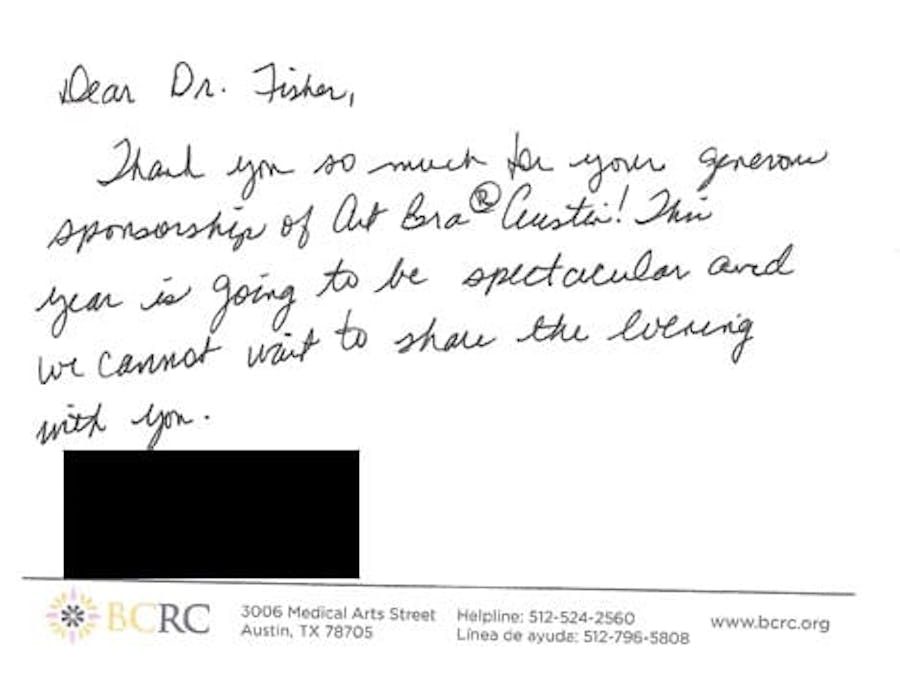 Dear Dr. Fisher,
Thank you so much for your generous
sponsorship of Art Bra® Austin! This
year is going to be spectacular and
we cannot wait to share the evening
with you.
BCRC
3006 Medical Arts Street
Austin, TX 78705
Helpline: 512-524-2560
Línea de ayuda: 512-796-5808
www.bcrc.org